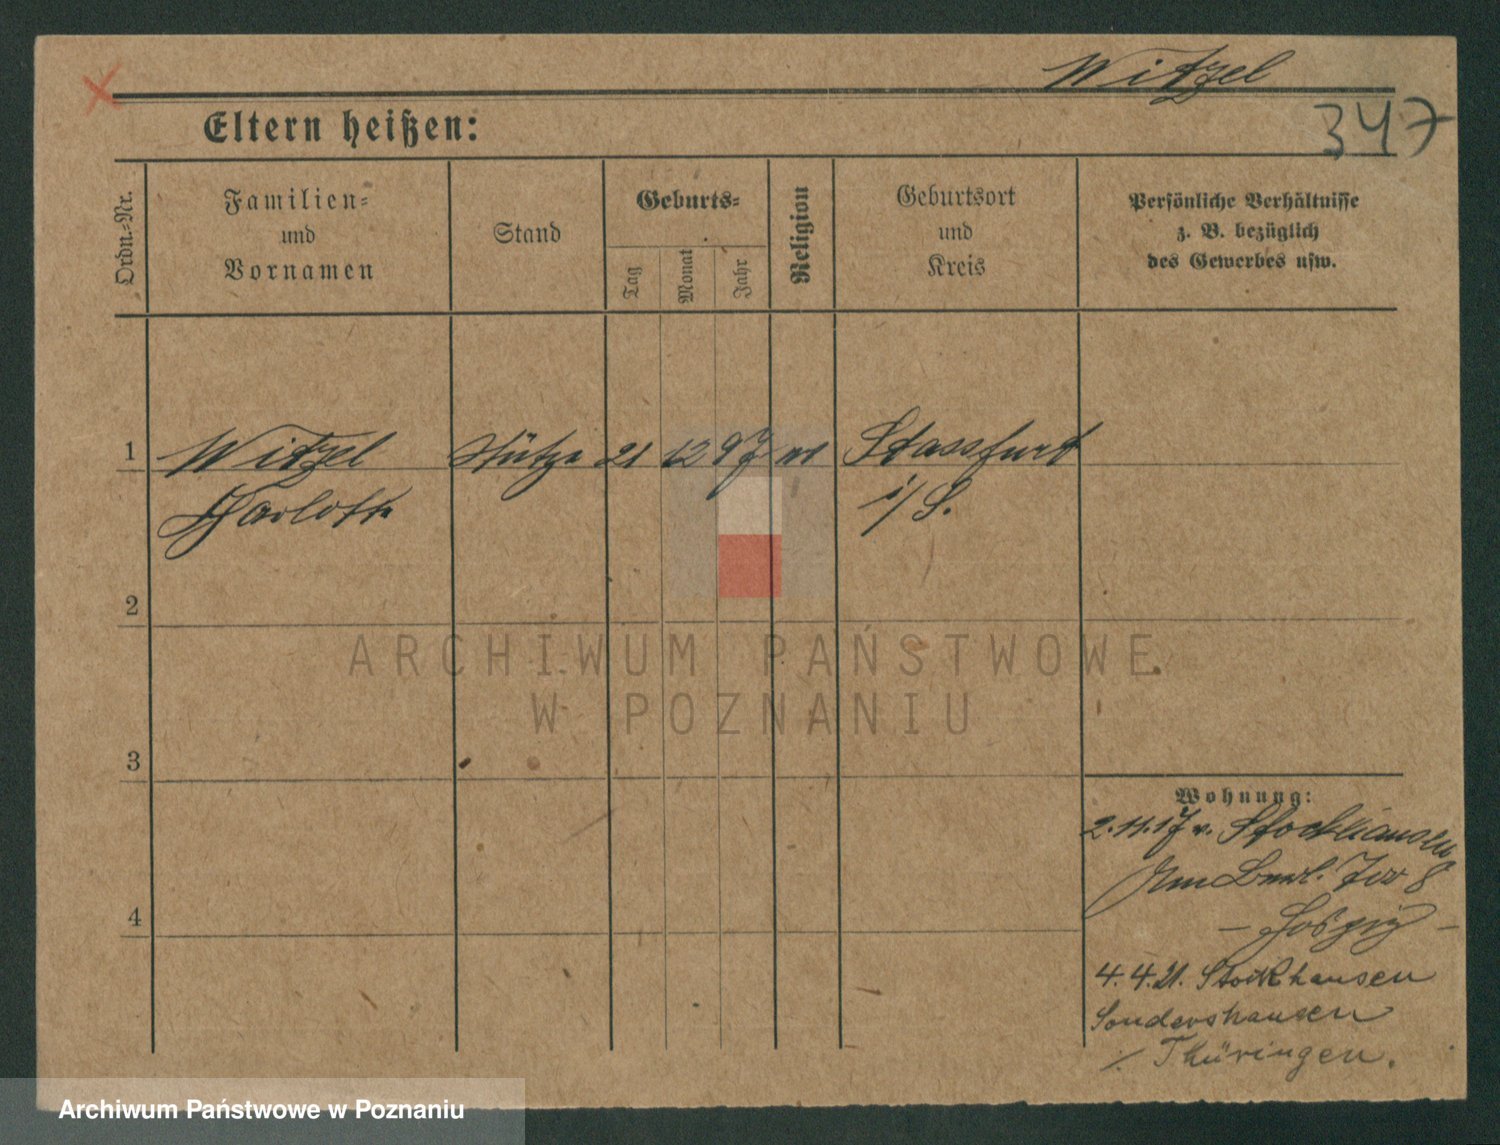 Witzel
347
Eltern heißen:
Ordn.-Nr.
Familien-
und
Vornamen
Stand
Geburts-
Tag
Monat
Jahr
Religion
Geburtsort
und
Kreis
Persönliche Verhältnisse
z. B. bezüglich
des Gewerbes usw.
1 Witzel Stütze 21 12 97 Stassfurt
Charlotte i/S.
2
3
4
Wohnung:
2.11.17 v. Stockhausen
8
4.4.21. Stockhausen
Sondershausen
/. Thüringen.
ARCHIWUM PAŃSTWOWE
W POZNANIU
Archiwum Państwowe w Poznaniu